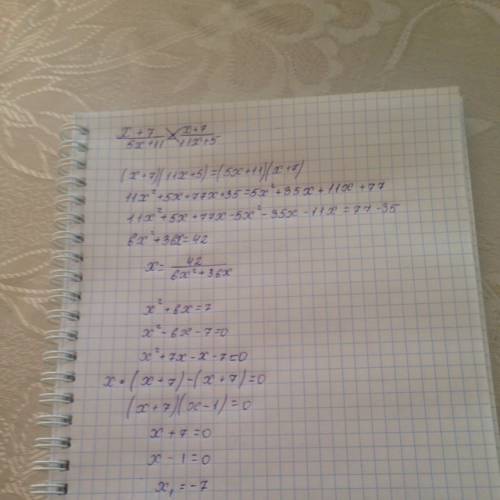 x+7/5x+11 = x+7/11x+5
(x+7)(11x+5)=(5x+11)(x+7)
11x²+5x+77x+35=5x²+35x+11x+77
11x²+5x+77x-5x²-35x-11x=77-35
6x²+36x=42
x=42/6x²+36x
x²+6x=7
x²-6x-7=0
x²+7x-x-7=0
x•(x+7)-(x+7)=0
(x+7)(x-1)=0
x+7=0
x-1=0
x₁=-7